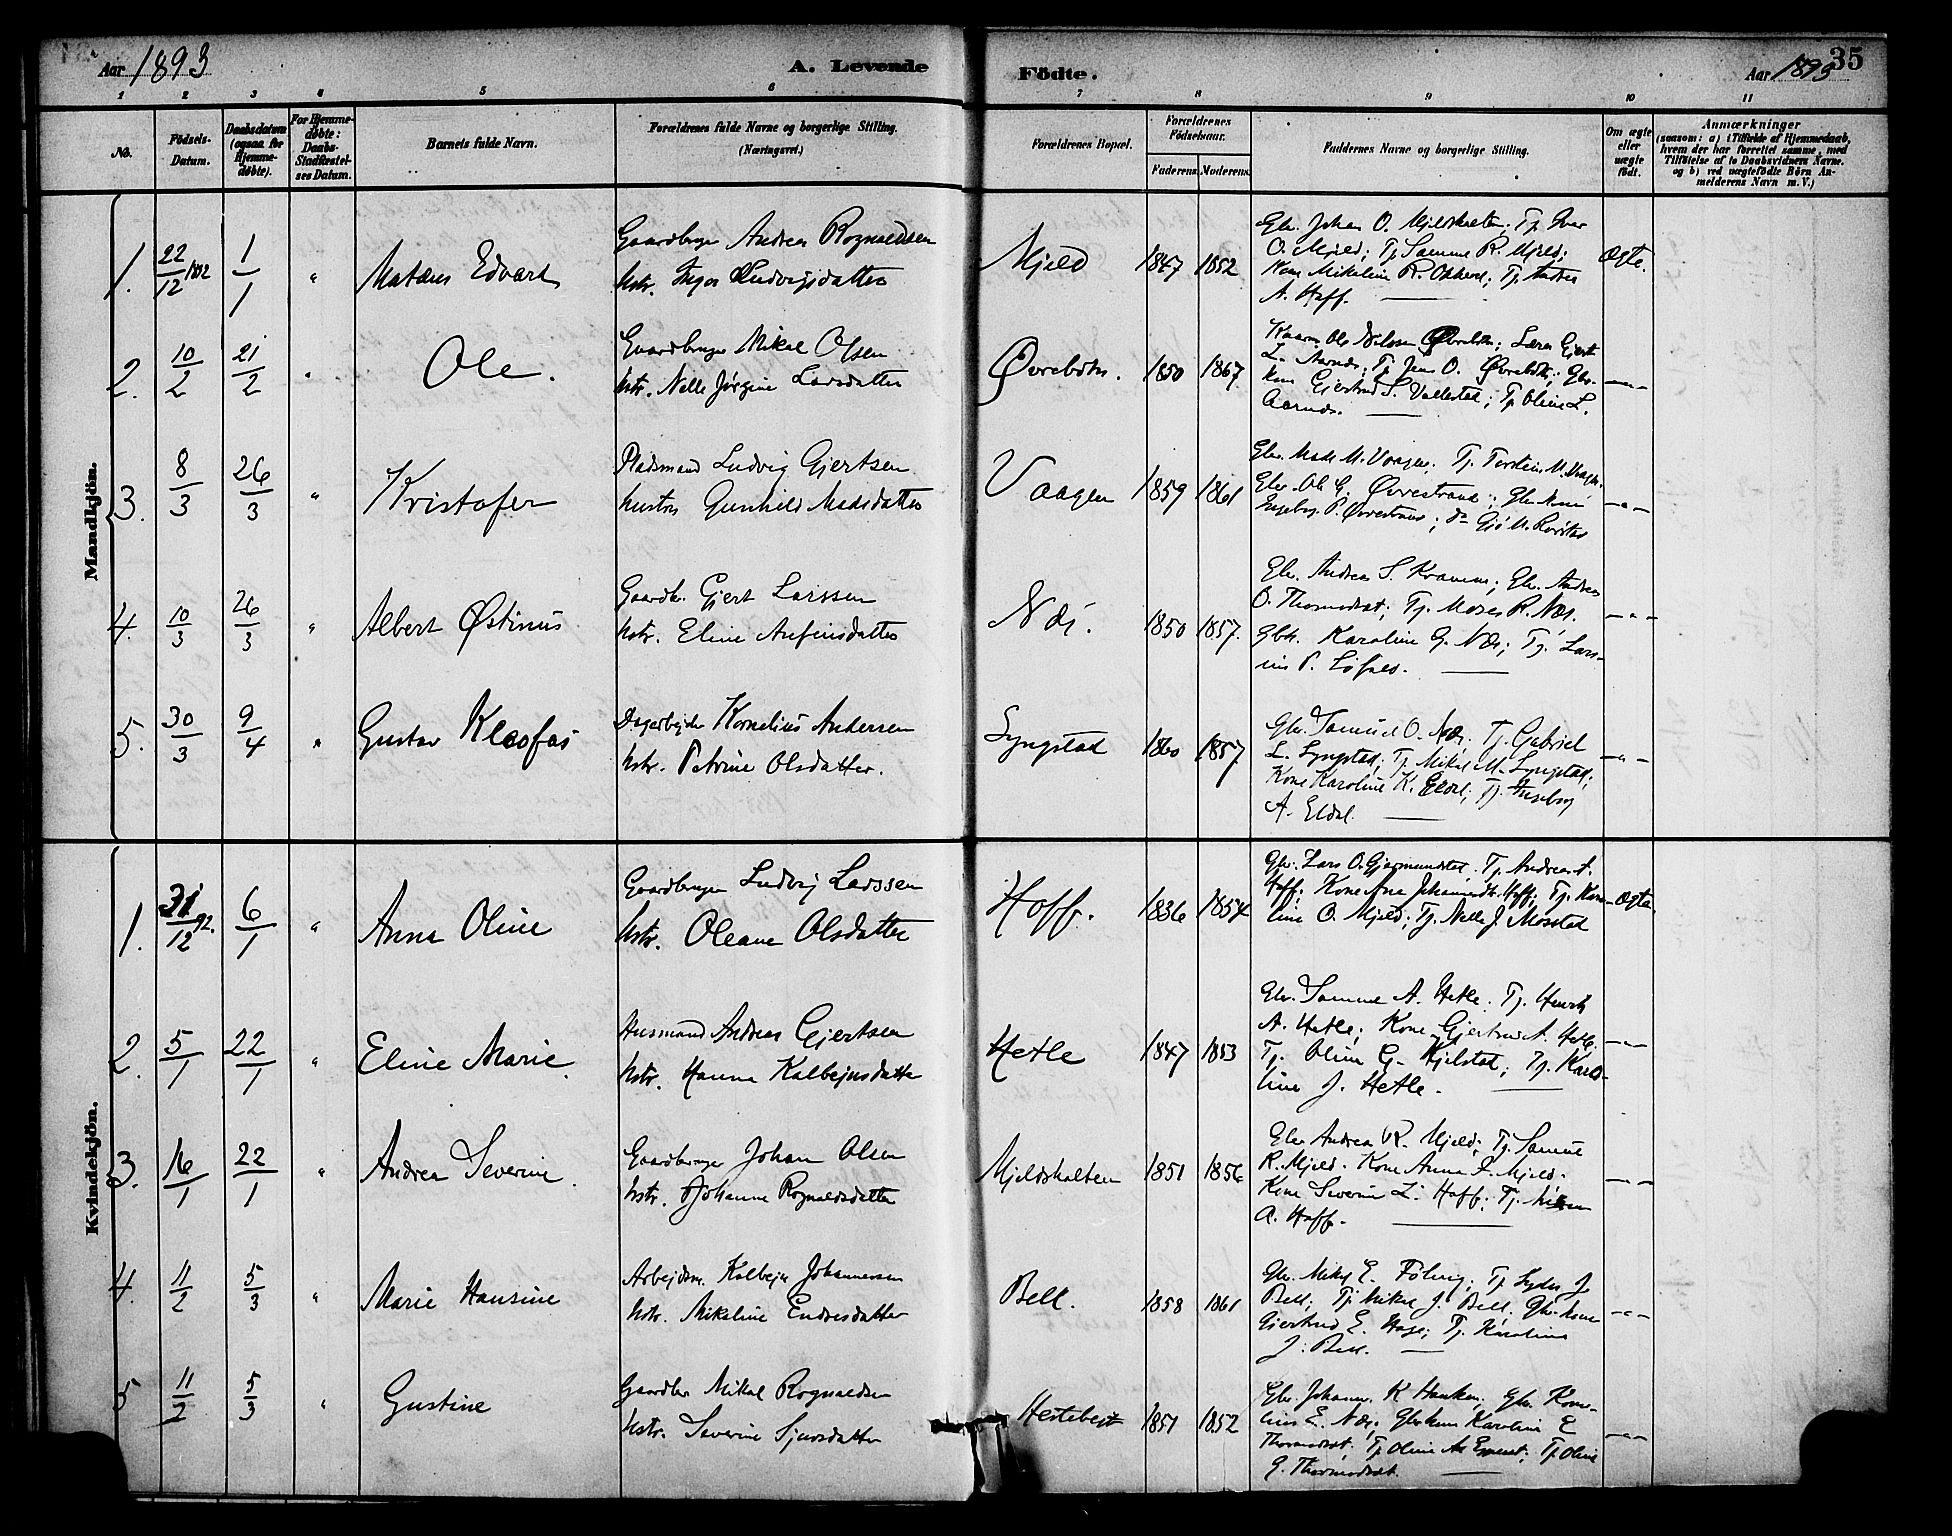 Aar 1893
A. Levende Födte.
Aar 1893 35
1 2 3 4 5 6 7 8 9 10 11
No.
Födsels-Datum.
Daabsdatum (ogsaa for Hjemmedøbte).
For Hjemmedøbte: Daabs-Stadfæstelses Datum.
Barnets fulde Navn.
Forældrenes fulde Navne og borgerlige Stilling. (Næringsvei.)
Forældrenes Bopæl.
Forældrenes Födselsaar.
Faderens Moderens
Faddernes Navne og borgerlige Stilling.
Om ægte eller uægte födt.
Anmærkninger
(saasom: a) i Tilfælde af Hjemmedaab,
hvem der har forrettet samme, med
Tilföielse af to Daabsvidners Navne.
og b) ved uægtefödte Börn Anmelderens
Navn m. V.)
Mandkjön.
1. 22/12 1892 1/1 " Matæus Edvart
Gaardbruger Andreas Rognaldsen
hstr. Inger Ludvigsdatter
Mjeld 1847 1852
Gbr. Johan O. Mjeldskalten; Tj. Iver
O. Mjeld; Tj. Samuel R. Mjeld;
Kone Mikeline R.
A. Hoff.
Ægte.
2. 10/2 21/2 " Ole.
Gaardbruger Mikal Olsen
hstr. Nelle Jørgine Larsdatter
Øvrebotn. 1850 1867
Ole Nilssen Øvrebotn;
L. Aarnes; Tj. Jens O. Øvrebotn; Gbr.
kone Gjertrud S. Vallestad; Tj. Oline L.
Aarnes.
— " —
3. 8/3 26/3 " Kristofer
Pladsmand Ludvig Gjertsen
hustru Gunhild Madsdatter
Vaagen 1859 1861
Gbr. Mads M. Vaagen. Tj. Torstein M. Vaagen.
Gbr. Ole G. Øvrestrand; Gbr. kone
Ingeborg P. Øvrestrand;
— " —
4. 10/3 26/3 " Albert Østinus
Gaardbr. Gjert Larssen
hstr. Eline Anfinsdatter
Næs. 1850 1857.
Gbr. Andreas S. Gbr. Andreas
O. Thormodset; Tj. Moses R. Næs.
Gbk. Karoline G. Næs; Tj. Lars-
— " —
5. 30/3 9/4 " Gustav Kleofas
Dagarbejder Kornelius Andersen
hstr. Petrine Olsdatter.
Lyngstad 1860 1857
Gbr. Samuel O. Næs; Tj. Gabriel
L. Lyngstad; Tj. Mikal M. Lyngstad;
Kone Karoline K. Eldal; Tj. Ingeborg
A. Eldal.
— " —
Kvindekjön.
1. 31/12 92. 6/1 " Anna Oline
Gaardbruger Ludvig Larssen
hstr. Oleane Olsdatter
Hoff. 1836 1854
Gbr. Lars O. Gjermundstad. Tj. Andreas A.
Hoff; Kone Ane Johannesdtr. Hoff; Tj. Karo-
line O. Mjeld; Tj. Nelle J. Mosstad
Ægte.
2. 5/1 22/1 " Eline Marie.
Husmand Andreas Gjertsen
hstr. Hanna Kolbejnsdatter
Hetle 1847 1853
Gbr. Samuel A. Hetle. Tj. Henrik
A. Hetle; Kone Gjertrud A. Hetle.
Tj. Oline G. Kjelstad; Tj. Karo-
line J. Hetle.
— " —
3. 16/1 22/1 " Andrea Severine.
Gaardbruger Johan Olsen
hstr. Johanne Rognaldsdatter
Mjeldskalten 1851 1856
Gbr Andreas R. Mjeld; Tj. Samuel
R. Mjeld. Kone Anna I. Mjeld.
Kone Severine L. Hoff; Tj.
A. Hoff.
— " —
4. 11/2 5/3 " Marie Hansine
Arbejdsm. Kolbejn Johannessen
hstr. Mikeline Endresdatter
Bell. 1858 1861
Gbr. Mikal E. Tj. Syder J.
Bell; Tj. Mikal J. Bell. Gbr. kone
Gjertrud E. Hage; Tj. Karoline
J. Bell.
— " —
5 11/2 5/3 " Gustine
Gaardbr Mikal Rognaldsen
hstr. Severine Sjursdatter
Hestebeit 1851 1852
Gbr. Johannes K Hauken; Gbr. Korne-
lius E. Næs; Gbr kone Karoline E
Thormodset; Tj Oline Tj Oline
G. Thormodset.
— " —